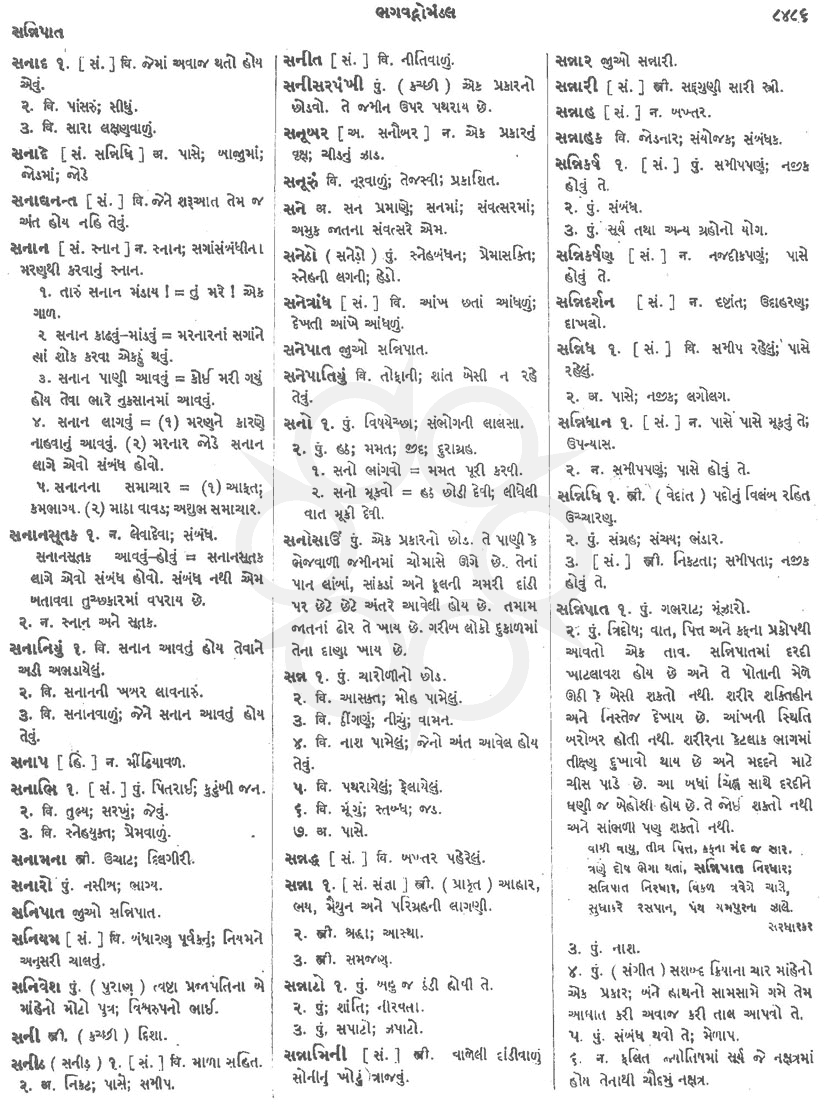 ભગવદ્ગોમંડલ
૮૪૮૬
સન્નિપાત
સનાદ ૧. [ સં. ] વિ. જેમાં અવાજ થતો હોય
એવું.
૨. વિ. પાંસરું; સીધું.
૩. વિ. સારા લક્ષણવાળું.
સનાદે [ સં. સન્નિધિ ] અ. પાસે; બાજુમાં;
જોડમાં; જોડે
સનાદ્યનન્ત [ સં. ] વિ. જેને શરૂઆત તેમ જ
અંત હોય નહિ તેવું.
સનાન [ સં. સ્નાન ] ન. સ્નાન; સગાંસંબંધીના
મરણથી કરવાનું સ્નાન.
૧. તારું સનાન મંડાય ! = તું મરે ! એક
ગાળ.
૨ સનાન કાઢવું-માંડવું = મરનારનાં સગાંને
ત્યાં શોક કરવા એકઠું થવું.
૩. સનાન પાણી આવવું = કોઈ મરી ગયું
હોય તેવા ભારે નુકસાનમાં આવવું.
૪. સનાન લાગવું = (૧) મરણને કારણે
નાહવાનું આવવું. (૨) મરનાર જોડે સનાન
લાગે એવો સંબંધ હોવો.
૫. સનાનના સમાચાર = (૧) આફત;
કમભાગ્ય. (૨) માઠા વાવડ; અશુભ સમાચાર.
સનાનસૂતક ૧. ન. લેવાદેવા; સંબંધ.
સનાનસૂતક આવવું-હોવું = સનાનસૂતક
લાગે એવો સંબંધ હોવો. સંબંધ નથી એમ
બતાવવા તુચ્છકારમાં વપરાય છે.
૨. ન. સ્નાન અને સૂતક.
સનાનિયું ૧. વિ. સનાન આવતું હોય તેવાને
અડી અભડાયેલું.
૨. વિ. સનાનની ખબર લાવનારું.
૩. વિ. સનાનવાળું; જેને સનાન આવતું હોય
તેવું.
સનાપ [ હિં. ] ન. મીંઢિયાવળ.
સનાભિ ૧. [ સં. ] પું. પિતરાઈ; કુટુંબી જન.
૨. વિ. તુલ્ય; સરખું; જેવું.
૩. વિ. સ્નેહયુક્ત; પ્રેમવાળું.
સનામના સ્ત્રી. ઉચાટ; દિલગીરી.
સનારો પું. નસીબ; ભાગ્ય.
સનિપાત જુઓ સન્નિપાત.
સનિયમ [ સં. ] વિ. બંધારણ પૂર્વકનું; નિયમને
અનુસરી ચાલતું.
સનિવેશ પું. ( પુરાણ ) ત્વષ્ટા પ્રજાપતિના બે
માંહેનો મોટો પુત્ર; વિશ્વરુપનો ભાઈ.
સની સ્ત્રી. ( કચ્છી ) દિશા.
સનીડ (સનીડ઼) ૧. [ સં. ] વિ. માળા સહિત.
૨. અ. નિકટ; પાસે; સમીપ.
સનીત [ સં. ] વિ. નીતિવાળું.
સનીસરપંખી પું. ( કચ્છી ) એક પ્રકારનો
છોડવો. તે જમીન ઉપર પથરાય છે.
સનૂબર [ અ. સનૌબર ] ન. એક પ્રકારનું
વૃક્ષ; ચીડનું ઝાડ.
સનૂરું વિ. નૂરવાળું; તેજસ્વી; પ્રકાશિત.
સને અ. સન પ્રમાણે; સનમાં; સંવત્સરમાં;
અમુક જાતના સંવત્સરે એમ.
સનેડો (સનેડ઼ો) પું. સ્નેહબંધન; પ્રેમાસક્તિ;
સ્નેહની લગની; હેડો.
સનેત્રાંધ [ સં. ] વિ. આંખ છતાં આંધળું;
દેખતી આંખે આંધળું.
સનેપાત જુઓ સન્નિપાત.
સનેપાતિયું વિ. તોફાની; શાંત બેસી ન રહે
તેવું.
સનો ૧. પું. વિષયેચ્છા; સંભોગની લાલસા.
૨. પું. હઠ; મમત; જીદ; દુરાગ્રહ.
૧. સનો ભાંગવો = મમત પૂરી કરવી.
૨. સનો મૂકવો = હઠ છોડી દેવી; લીધેલી
વાત મૂકી દેવી.
સનોસાઉં પું. એક પ્રકારનો છોડ. તે પાણી કે
ભેજવાળી જમીનમાં ચોમાસે ઊગે છે. તેનાં
પાન લાંબાં, સાંકડાં અને ફૂલની ચમરી દાંડી
પર છેટે છેટે અંતરે આવેલી હોય છે. તમામ
જાતનાં ઢોર તે ખાય છે. ગરીબ લોકો દુકાળમાં
તેના દાણા ખાય છે.
સન્ન ૧. પું. ચારોળીનો છોડ.
૨. વિ. આસક્ત; મોહ પામેલું.
૩. વિ. ઠીંગણું; નીચું; વામન.
૪. વિ. નાશ પામેલું; જેનો અંત આવેલ હોય
તેવું.
૫. વિ. પથરાયેલું; ફેલાયેલું.
૬. વિ. મૂંગું; સ્તબ્ધ; જડ.
૭. અ. પાસે.
સન્નદ્ધ [ સં. ] વિ. બખ્તર પહેરેલું.
સન્ના ૧. [ સં. સંજ્ઞા ] સ્ત્રી. ( પ્રાકૃત ) આહાર,
ભય, મૈથુન અને પરિગ્રહની લાગણી.
૨. સ્ત્રી. શ્રદ્ધા; આસ્થા.
૩. સ્ત્રી. સમજણ.
સન્નાટો ૧. પું. બહુ જ ઠંડી હોવી તે.
૨. પું; શાંતિ; નીરવતા.
૩. પું. સપાટો; ઝપાટો.
સન્નામિની [ સં. ] સ્ત્રી. વાળેલી દાંડીવાળું
સોનીનું ખોટું ત્રાજવું.
સન્નાર જુઓ સન્નારી.
સન્નારી [ સં. ] સ્ત્રી. સદ્ગુણી સારી સ્ત્રી.
સન્નાહ [ સં. ] ન. બખ્તર.
સન્નાહક વિ. જોડનાર; સંયોજક; સંબંધક.
સન્નિકર્ષ ૧. [ સં. ] પું. સમીપપણું; નજીક
હોવું તે.
૨. પું. સંબંધ.
૩. પું. સૂર્ય તથા અન્ય ગ્રહોનો યોગ.
સન્નિકર્ષણ [ સં. ] ન. નજદીકપણું; પાસે
હોવું તે.
સન્નિદર્શન [ સં. ] ન. દૃષ્ટાંત; ઉદાહરણ;
દાખલો.
સન્નિધ ૧. [ સં. ] વિ. સમીપ રહેલું; પાસે
રહેલું.
૨. અ. પાસે; નજીક; લગોલગ.
સન્નિધાન ૧. [ સં. ] ન. પાસે પાસે મૂકવું તે;
ઉપન્યાસ.
૨. ન. સમીપપણું; પાસે હોવું તે.
સન્નિધિ ૧. સ્ત્રી. ( વેદાંત ) પદોનું વિલંબ રહિત
ઉચ્ચારણ.
૨. પું. સંગ્રહ; સંચય; ભંડાર.
૩. [ સં. ] સ્ત્રી. નિકટતા; સમીપતા; નજીક
હોવું તે.
સન્નિપાત ૧. પું. ગભરાટ; મૂંઝારો.
૨. પું. ત્રિદોષ; વાત, પિત્ત અને કફના પ્રકોપથી
આવતો એક તાવ. સન્નિપાતમાં દરદી
ખાટલાવશ હોય છે અને તે પોતાની મેળે
ઊઠી કે બેસી શકતો નથી. શરીર શક્તિહીન
અને નિસ્તેજ દેખાય છે. આંખની સ્થિતિ
બરોબર હોતી નથી. શરીરના કેટલાક ભાગમાં
તીક્ષ્ણ દુખાવો થાય છે અને મદદને માટે
ચીસ પાડે છે. આ બધાં ચિહ્ન સાથે દરદીને
ઘણી જ બેહોસી હોય છે. તે જોઈ શકતો નથી
અને સાંભળી પણ શકતો નથી.
વાગ્રી વાયુ, તીવ્ર પિત્ત, કફના મંદ જ સાર.
ત્રણે દોષ ભેગા થતાં, સન્નિપાત નિરધાર;
સન્નિપાત નિરધાર, વિકળ ત્રવેગે ચાલે,
સુધાકરે રસપાન, પંથ યમપુરના ઝાલે.
સરધારકર
૩. પું. નાશ.
૪. પું. ( સંગીત ) સશબ્દ ક્રિયાના ચાર માંહેનો
એક પ્રકાર; બંને હાથનો સામસામે ગમે તેમ
આઘાત કરી અવાજ કરી તાલ આપવો તે.
૫. પું. સંબંધ થવો તે; મેળાપ.
૬. ન. ફલિત જ્યોતિષમાં સૂર્ય જે નક્ષત્રમાં
હોય તેનાથી ચૌદમું નક્ષત્ર.